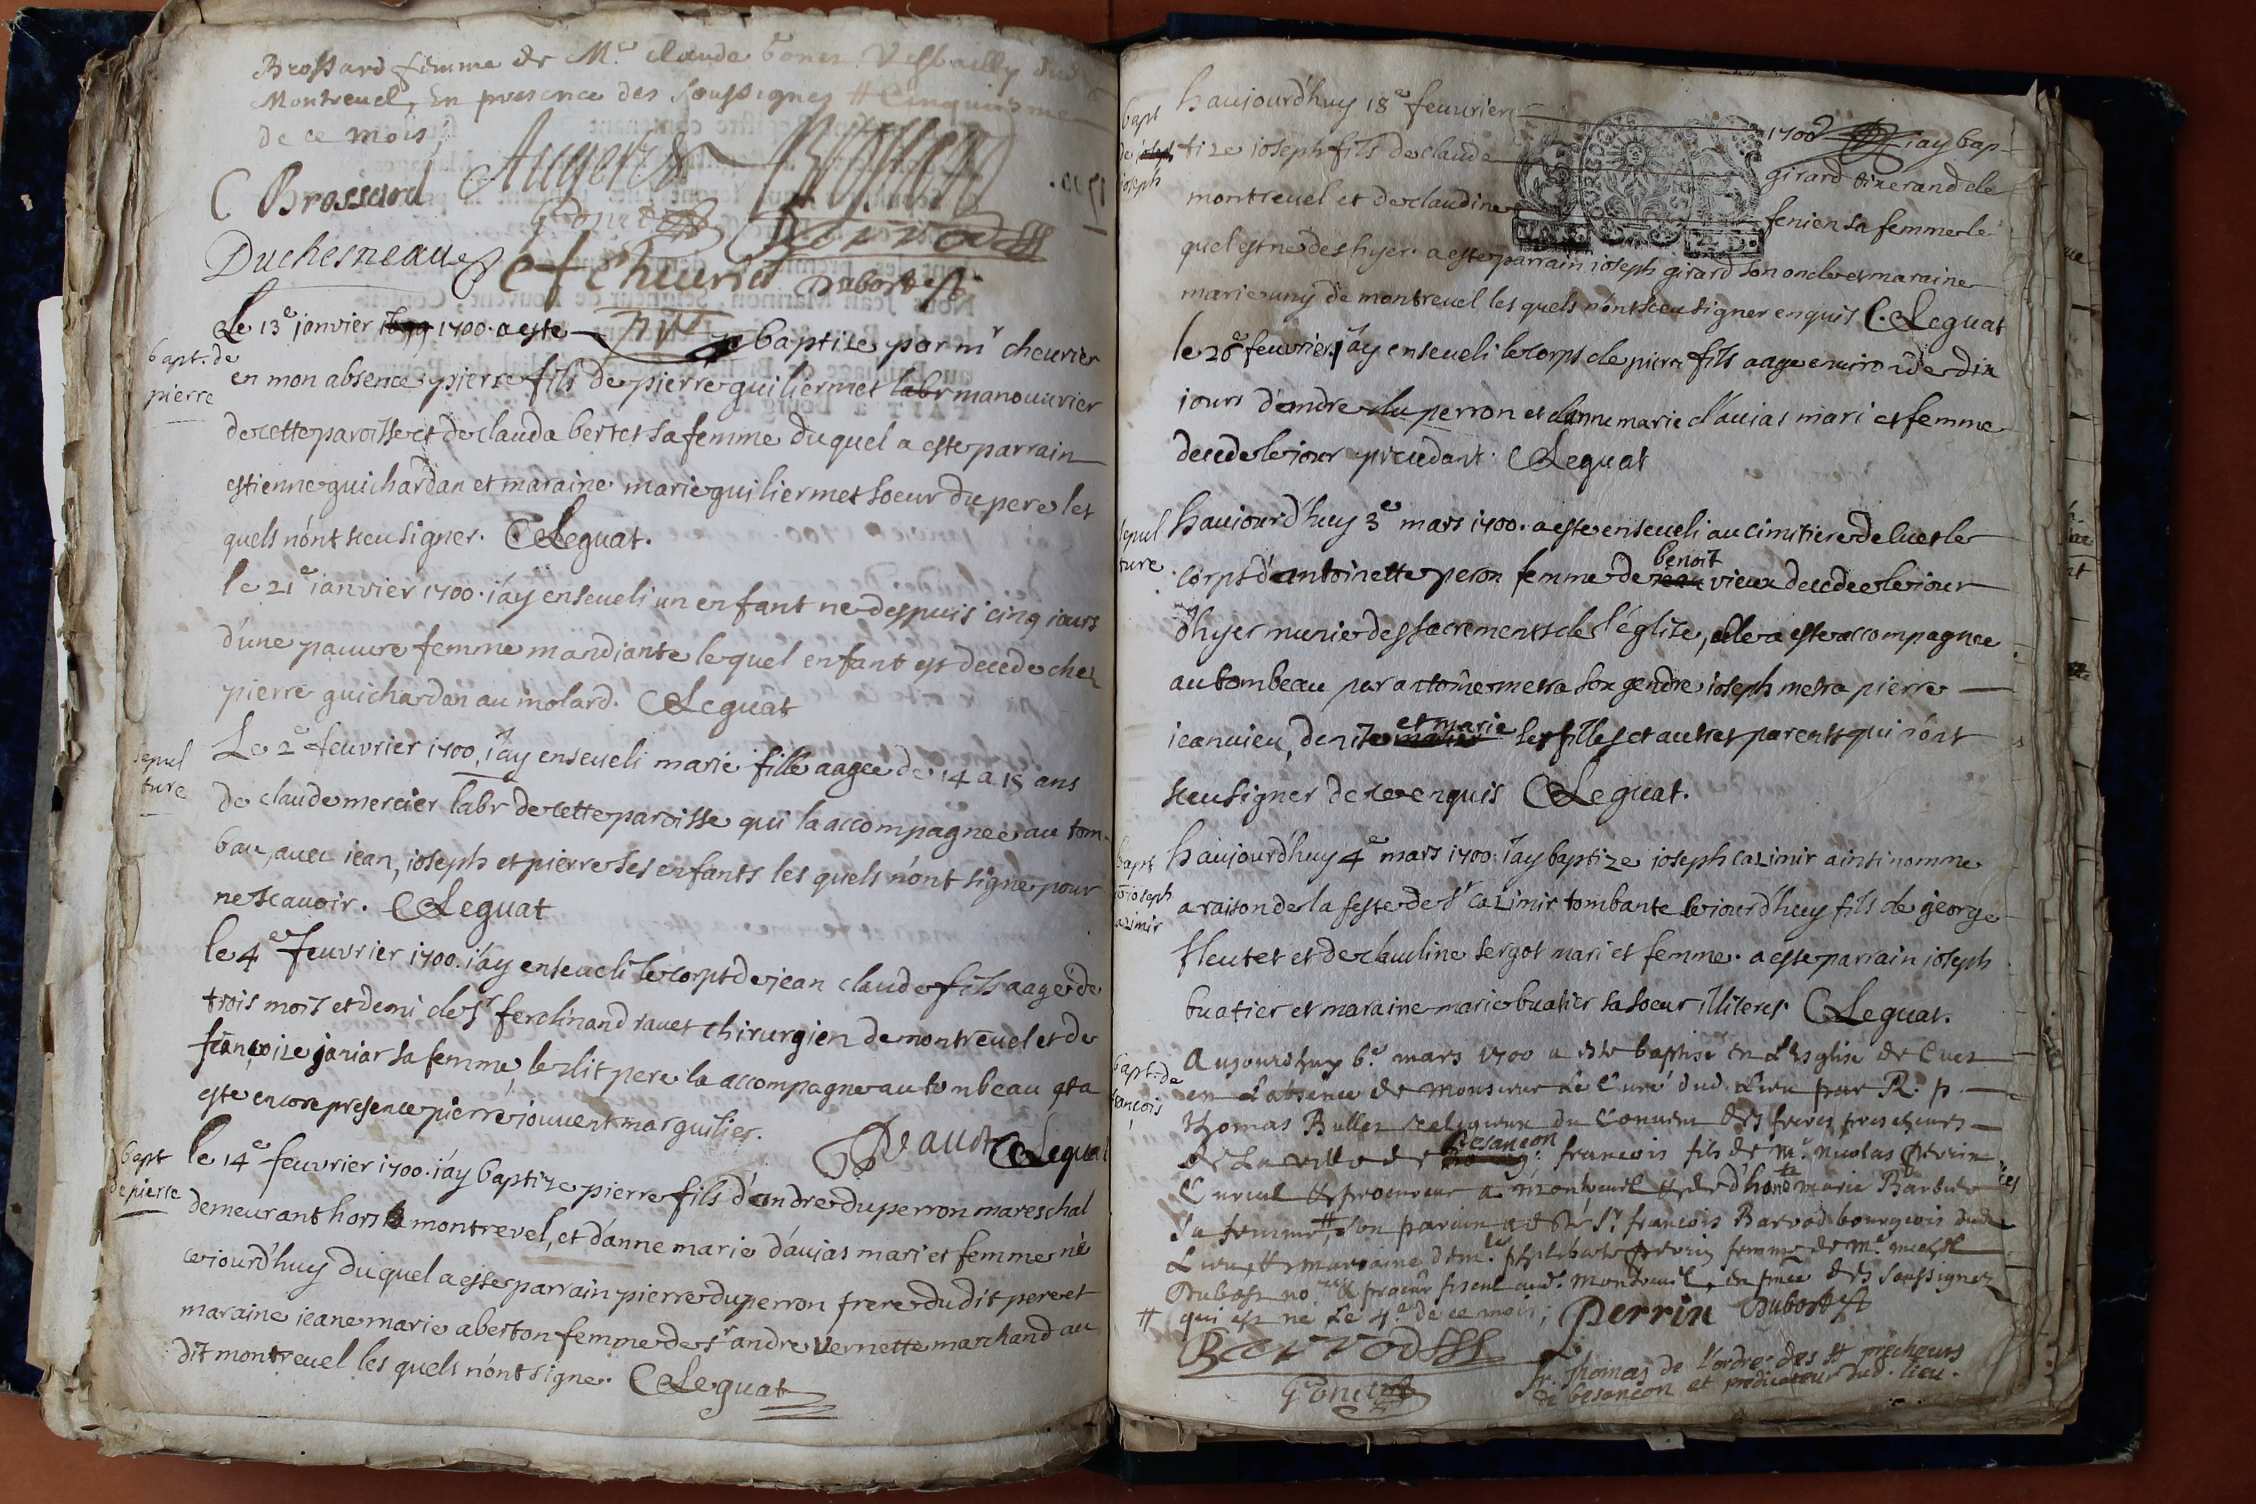 Brossard femme de Mr. claude
Montreuel, En presence des soussignez # Cinquiesme
de ce mois;
C Brossard
Duchesneau
Dubost
Le 13e janvier 1699 1700. a este baptize par mr cheurier
bapt. de
pierre
en mon absence pierre fils de pierre guiliermet labr manouurier
de cette paroisse et de clauda bertet sa femme duquel a este parrain
estienne guichardan et maraine marie guiliermet soeur du pere les
quels n'ont sceu signer. CLeguat.
le 21e ianvier 1700. i'ay enseueli un enfant ne despuis cinq iours
d'une pauure femme mandiante lequel enfant est decede chez
pierre guichardan au molard. CLeguat
sepul
ture
Le 2e feuvrier 1700, i'ay enseueli marie fille aagee de 14 a 15 ans
de claude mercier labr de cette paroisse qui la accompagnee au tom-
beau, auec iean, ioseph et pierre ses enfants les quels n'ont signe pour
ne scauoir. CLeguat
le 4e feuvrier 1700. i'ay enseueli le corps de jean claude fils aage de
trois mois et demi de sr ferdinand rauet chirurgien de montreuel et de
francoise janiar sa femme, le dit pere la accompagne au tombeau et a
este encore presence pierre jouuent marguilier.
Rauet CLeguat
bapt
de pierre
le 14e feuvrier 1700. i'ay baptize pierre fils d'andre duperron mareschal
demeurant hors de montrevel, et d'anne marie d'aujas mari et femme né
ce iourd'huy duquel a este parrain pierre duperron frere du dit pere et
maraine ieane marie aberton femme de sr andre vernette marchand au
dit montreuel les quels n'ont signe. CLeguat
bapt
de joseph
ioseph
haujourd'huy 18e feuurier 1700 iay bap-
tize ioseph fils de claude girard tixerand de
montreuel et de claudine fenien sa femme le
quel est ne des hyer. a este parrain ioseph girard son oncle et maraine
marie uny de montreuel les quels n'ont sceu signer enquis CLeguat
le 20e feuvrier j'ay enseueli le corps de pierre fils aage enuiron de dix
iours d'andre du perron et d'anne marie d'auias mari et femme
decede le iour precedant. CLeguat
sepul
ture
haujourd'huy 3e mars 1700. a este enseueli au cimitiere de cuet le
corps d'antoinette peron femme de jean benoit vieux decedee le iour
d'hyer munie des sacrements de l'eglise, elle a este accompagnee
au tombeau par antoine metra son gendre ioseph metra pierre
iean uieu, denise et marie ses filles et autres parents qui n'ont
sceu signer de ce enquis CLeguat.
bapt
de ioseph
cazimir
haujourd'huy 4e mars 1700. i'ay baptize ioseph cazimir ainsi nomme
a raison de la feste de st cazimir tombante ce iourd'huy fils de george
fleutet et de claudine sergot mari et femme. a este parrain ioseph
buatier et maraine marie buatier sa soeur illiteres. CLeguat.
bapt. de
francois
Aujourdhuy 6e mars 1700 a este baptise En L'Esglise de Cuet
en L'absence de Monsieur Le Curé dud. Lieu par R. p.
Thomas Bullet relligieux du Conuent des freres prescheurs
de La ville de Besancon francois fils de Mr. nicolas Perrin
Curial & procureur a Montreuel & de d'hte marie Barbier
sa femme #, son parrain a esté sr. francois Barrod bourgeois dud.
Lieu, & marraine perrin femme de Mr. michel
Dubost no.re & procur fiscal aud. Montreuel, en pnce des soussignez
# qui est né Le 4e de ce mois; Perrin Dubost
Barrod
fr. thomas de l'ordre des ff prêcheurs
de besancon et predicateur dud. lieu.